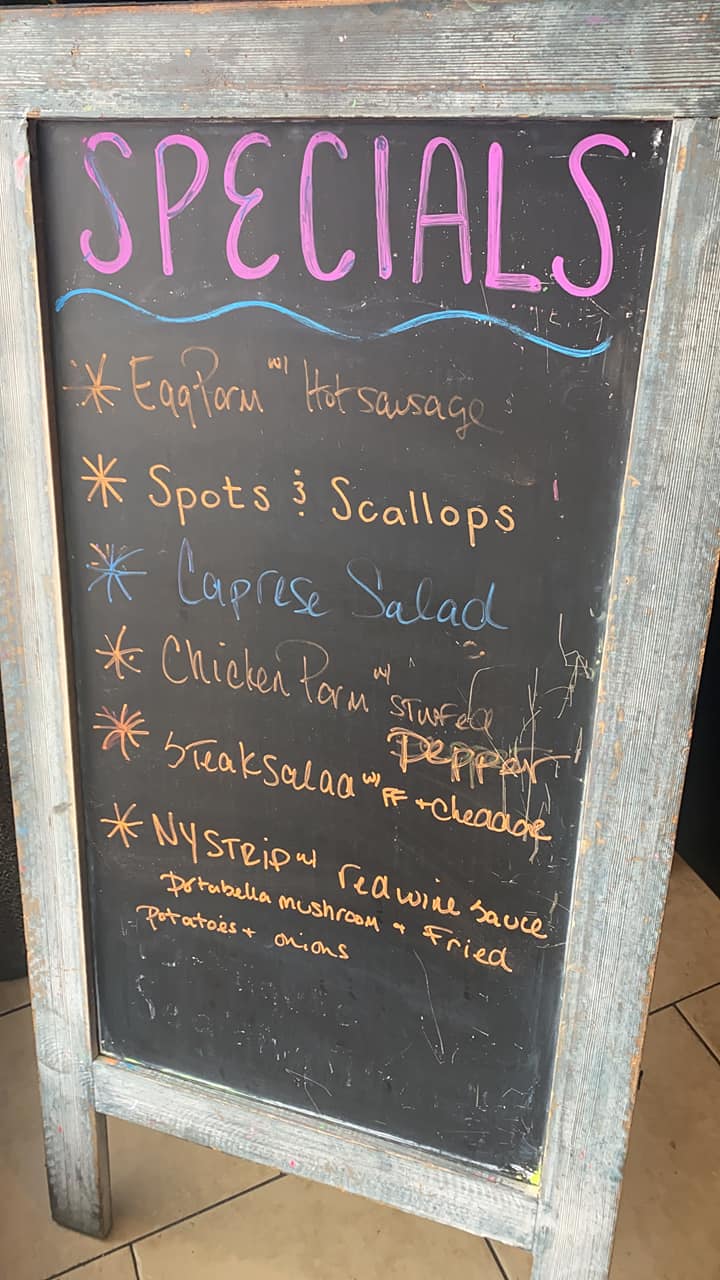 SPECIALS
* Egg Parm w/ Hot sausage
* Spots & Scallops
* Caprese Salad
* Chicken Parm w/ STUFFED
PEPPER
* STeak Salad w/ FF + Cheddar
* NY STRIP w/ red wine sauce
Portabella mushroom + Fried
Potatoes + onions